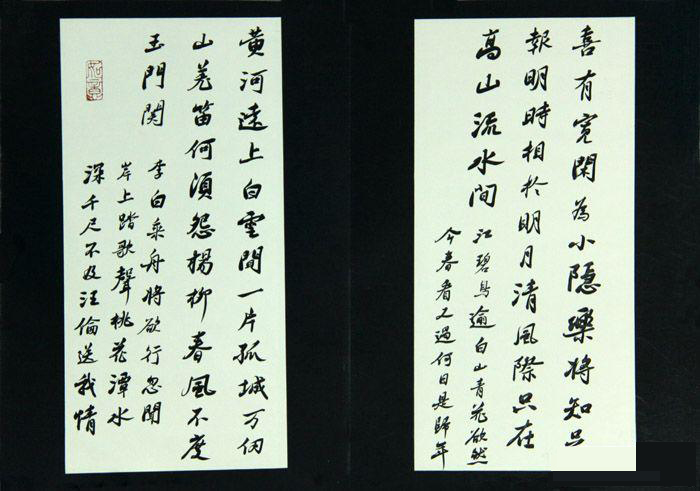 喜有寬閑為小隱樂將知足
報明時相於明月清風際只在
高山流水間
江碧鳥逾白山青花欲然
今春看又過何日是歸年
黄河遠上白雲間一片孤城万仞
山羌笛何須怨楊柳春風不度
玉門関
李白乘舟將欲行忽聞
岸上踏歌聲桃花潭水
深千尺不及汪倫送我情